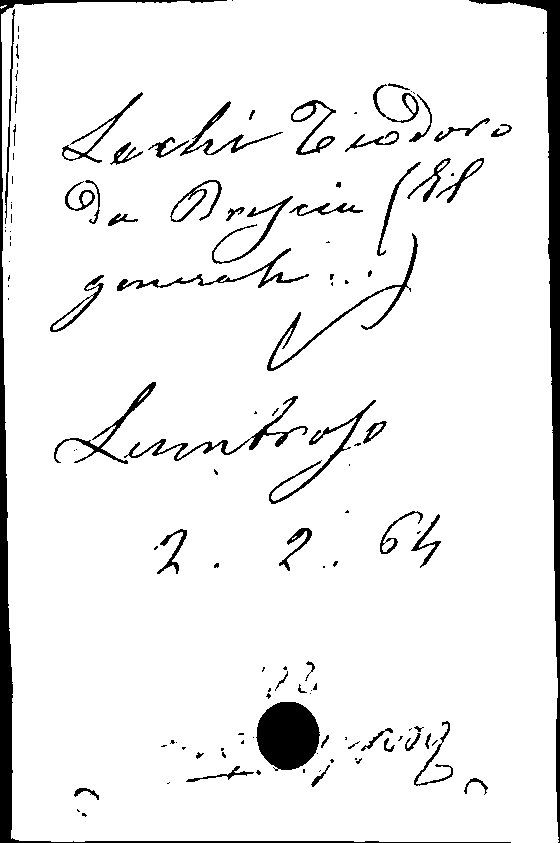 Lechi Teodoro
da Brescia (Il
generale ...)
Lumbroso
2. 2. 64